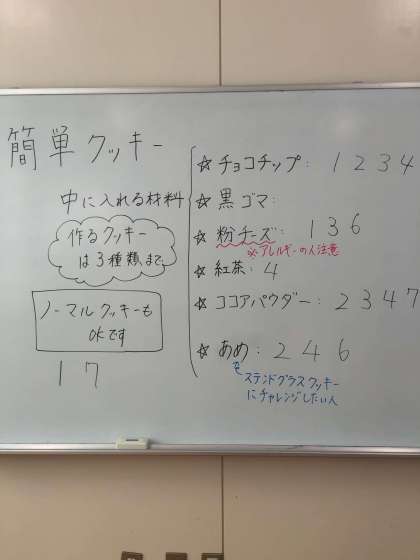 簡単クッキー
中に入れる材料
作るクッキー
は3種類まで
ノーマルクッキーも
OKです
1 7
☆チョコチップ: 1 2 3 4
☆黒ゴマ:
☆粉チーズ: 1 3 6
※アレルギーの人注意
☆紅茶: 4
☆ココアパウダー: 2 3 4 7
☆あめ: 2 4 6
ステンドグラスクッキー
にチャレンジしたい人